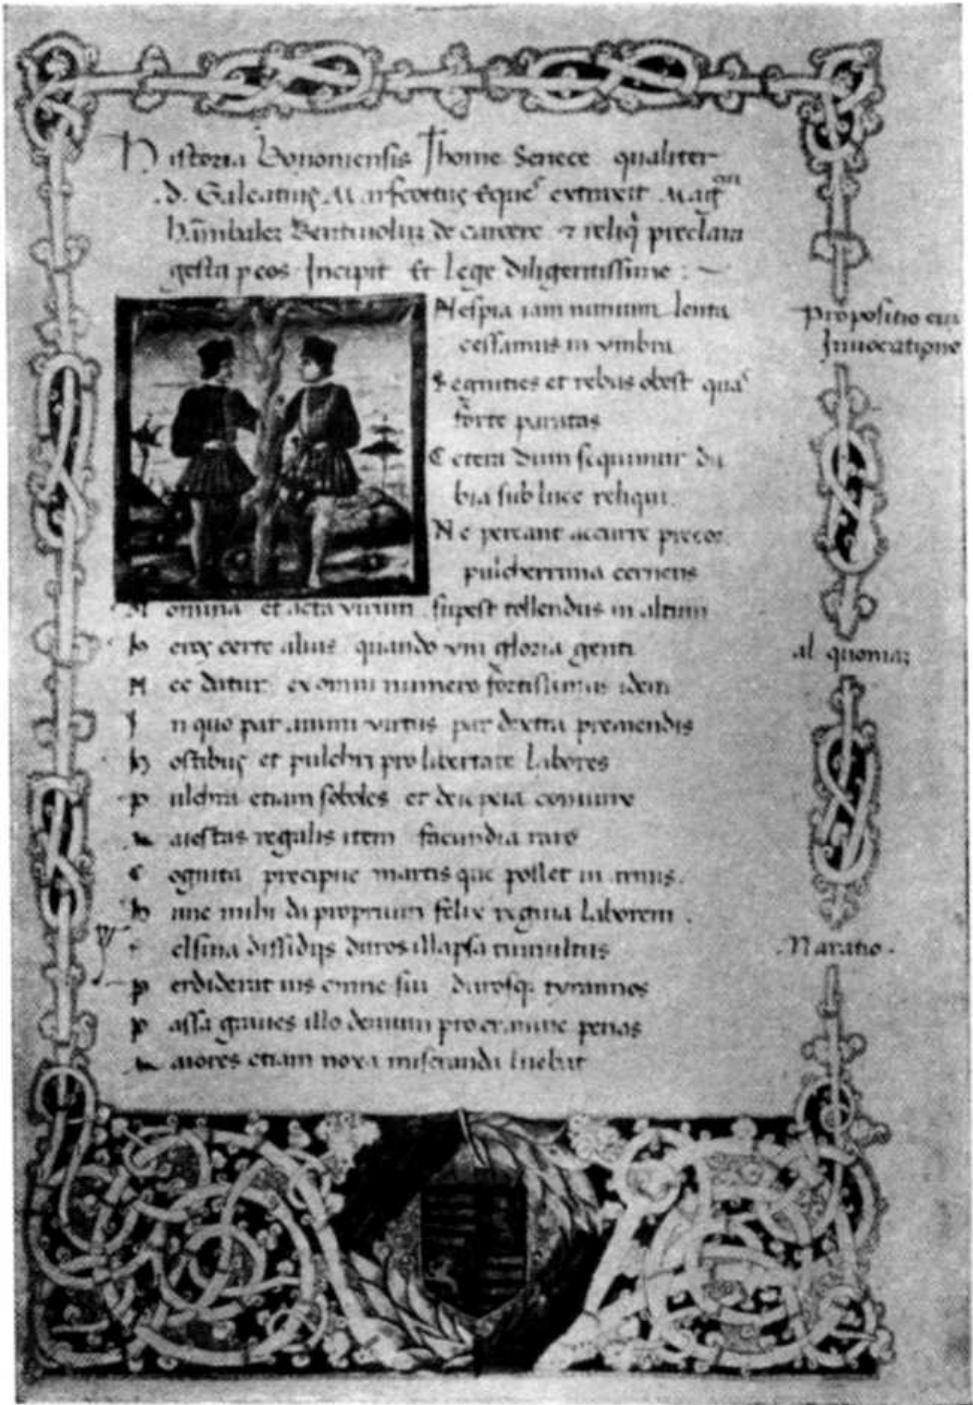 Historia Bononiensis Thome Senece qualiter
.d. Galeatius Marscottus eques extraxit Mag
Hānibalez Bentiuolus de carcere ⁊ reliq̄ preclara
gesta p eos Incipit Et lege diligentissime : ~
Nespia iam nimium lenta
cessamus in vmbra
Segnities et rebus obest quas
forte paratas
Cetera dum sequimur du
bia sub luce reliqui.
Ne pereant accurre precor
pulcherrima cernens
Nomina et acta virum supest tollendus in altum
certe alius quando vni gloria genti
Nec datur ex omni numero fortissimus idem
In quo par animi virtus par dextra premendis
Hostibus et pulchri pro libertate labores
Pulchra etiam soboles et
Maiestas regalis item facundia raro
Cognita precipue martis que pollet in armis.
Hunc mihi da proprium felix regina laborem .
felsina dissidijs duros illapsa tumultus
Perdiderat ius omne sui durosq; tyrannos
Passa graues illo demum pro crimine penas
Maiores etiam noxa miseranda luebat
Propositio cum
Inuocatione
al quoniaz
. Naratio .